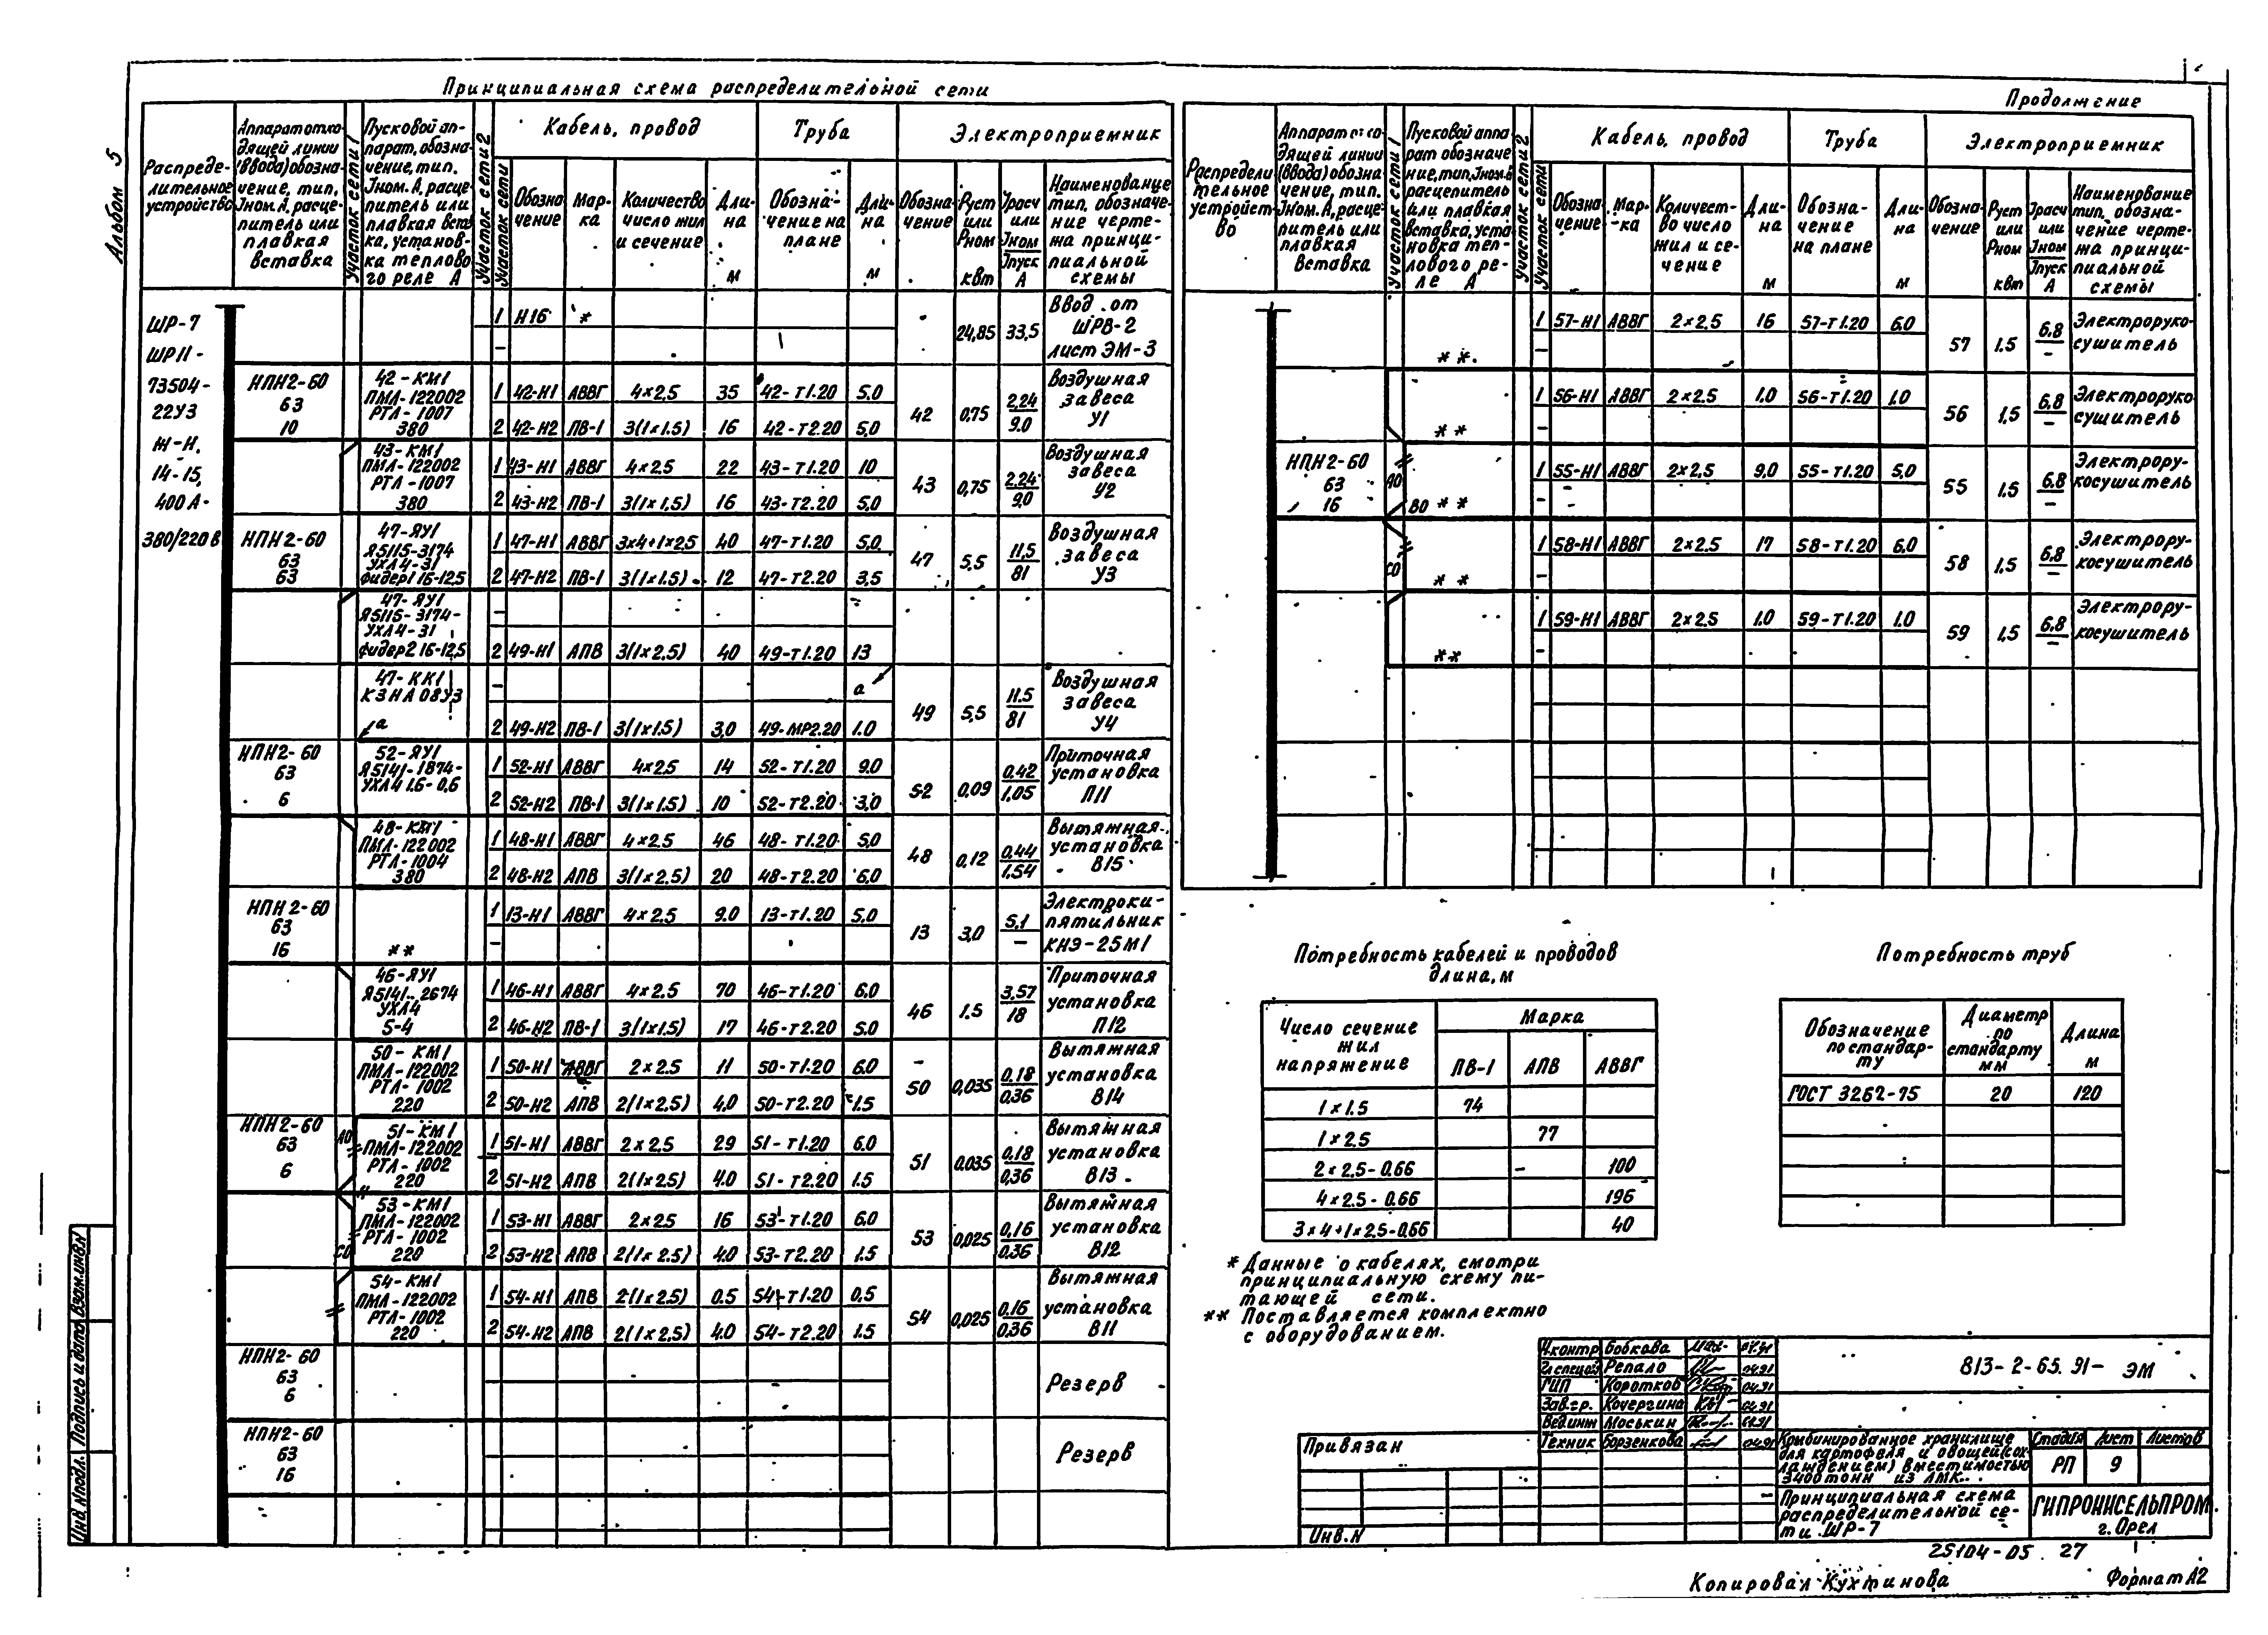 Альбом 5
Принципиальная схема распределительной сети
Распреде-
лительное
устройство
Аппарат отхо-
дящей линии
(ввода) обозна-
чение, тип,
Iном. А, расце-
питель или
плавкая
вставка
Участок сети 1
Пусковой ап-
парат, обозна-
чение, тип.
Iном. А, расце-
питель или
плавкая вста-
ка, установ-
ка теплово-
го реле А
Участок сети 2
Участок сети
Кабель, провод
Обозна-
чение
Мар-
ка
Количество
число жил
и сечение
Дли-
на
м
Труба
Обозна-
чение на
плане
Дли-
на
м
Электроприемник
Обозна-
чение
Руст
или
Рном
квт
Iрасч
или
Iном
Iпуск
А
Наименование
тип, обозначе-
ние черте-
жа принци-
пиальной
схемы
ШР-7
ШР11-
73504-
22У3
Ж-Н.
14-15,
400А-
380/220 в
1 Н16 * 24,85 33,5 Ввод от
ШРВ-2
лист ЭМ-3
–
НПН2-60
63
10
42-КМ1
ПМЛ-122002
РТЛ-1007
380
1 42-Н1 АВВГ 4×2,5 35 42-Т1.20 5.0
2 42-Н2 ПВ-1 3(1×1.5) 16 42-Т2.20 5,0
42 0,75 2,24/9.0 Воздушная
завеса
У1
43-КМ1
ПМЛ-122002
РТЛ-1007
380
1 43-Н1 АВВГ 4×2.5 22 43-Т1.20 10
2 43-Н2 ПВ-1 3(1×1,5) 16 43-Т2.20 5,0
43 0,75 2.24/9,0 Воздушная
завеса
У2
НПН2-60
63
63
47-ЯУ1
Я5115-3174
УХЛ4-31
фидер1 16-12,5
1 47-Н1 АВВГ 3×4+1×2,5 40 47-Т1.20 5,0
2 47-Н2 ПВ-1 3(1×1.5) 12 47-Т2.20 3,5
47 5,5 11,5/81 Воздушная
завеса
У3
47-ЯУ1
Я5115-3174-
УХЛ4-31
фидер2 16-12,5
–
2 49-Н1 АПВ 3(1×2.5) 40 49-Т1.20 13
47-КК1
КЗНА08У3
а
–
а
2 49-Н2 ПВ-1 3(1×1.5) 3,0 49-МР2.20 1.0
49 5,5 11.5/81 Воздушная
завеса
У4
НПН2-60
63
6
52-ЯУ1
Я5141-1874-
УХЛ4 1.6-0,6
1 52-Н1 АВВГ 4×2.5 14 52-Т1.20 9.0
2 52-Н2 ПВ-1 3(1×1.5) 10 52-Т2.20 3,0
52 0,09 0,42/1,05 Приточная
установка
П11
48-КМ1
ПМЛ-122002
РТЛ-1004
380
1 48-Н1 АВВГ 4×2.5 46 48-Т1.20 5,0
2 48-Н2 АПВ 3(1×2.5) 20 48-Т2.20 6.0
48 0,12 0,44/1,54 Вытяжная
установка
В15
НПН2-60
63
16
**
1 13-Н1 АВВГ 4×2.5 9.0 13-Т1.20 5.0
–
13 3,0 5,1/– Электроки-
пятильник
КНЭ-25М1
46-ЯУ1
Я5141.. 2674
УХЛ4
5-4
1 46-Н1 АВВГ 4×2.5 70 46-Т1.20 6.0
2 46-Н2 ПВ-1 3(1×1.5) 17 46-Т2.20 5.0
46 1.5 3,57/18 Приточная
установка
П12
50-КМ1
ПМЛ-122002
РТЛ-1002
220
1 50-Н1 АВВГ 2×2.5 11 50-Т1.20 6.0
2 50-Н2 АПВ 2(1×2.5) 4,0 50-Т2.20 1.5
50 0,035 0,18/0,36 Вытяжная
установка
В14
НПН2-60
63
6
АО
51-КМ1
ПМЛ-122002
РТЛ-1002
220
1 51-Н1 АВВГ 2×2,5 29 51-Т1.20 6.0
2 51-Н2 АПВ 2(1×2.5) 4.0 51-Т2.20 1.5
51 0,035 0,18/0,36 Вытяжная
установка
В13
СО
53-КМ1
ПМЛ-122002
РТЛ-1002
220
1 53-Н1 АВВГ 2×2.5 16 53-Т1.20 6.0
2 53-Н2 АПВ 2(1×2.5) 4.0 53-Т2.20 1.5
53 0,025 0,16/0,36 Вытяжная
установка
В12
54-КМ1
ПМЛ-122002
РТЛ-1002
220
1 54-Н1 АПВ 2(1×2.5) 0.5 54-Т1.20 0,5
2 54-Н2 АПВ 2(1×2,5) 4.0 54-Т2.20 1.5
54 0,025 0,16/0,36 Вытяжная
установка
В11
НПН2-60
63
6
Резерв
НПН2-60
63
16
Резерв
Продолжение
Распредели
тельное
устройст-
во
Аппарат отхо-
дящей линии
(ввода) обозна-
чение, тип.
Iном. А, расце-
питель или
плавкая
вставка
Участок сети 1
Пусковой аппа-
рат обозначе
ние, тип, Iном. А
расцепитель
или плавкая
вставка, уста
новка теп-
лового ре-
ле А
Участок сети 2
Участок сети
Кабель, провод
Обозна-
чение
Мар-
ка
Количест-
во число
жил и се-
чение
Дли-
на
м
Труба
Обозна-
чение
на плане
Дли-
на
м
Электроприемник
Обозна-
чение
Руст
или
Рном
квт
Iрасч
или
Iном
Iпуск
А
Наименование
тип, обозна-
чение черте-
жа принци-
пиальной
схемы
**
1 57-Н1 АВВГ 2×2.5 16 57-Т1.20 6.0
–
57 1.5 6.8/– Электроруко-
сушитель
**
1 56-Н1 АВВГ 2×2.5 1.0 56-Т1.20 1.0
–
56 1,5 6,8/– Электроруко
сушитель
НПН2-60
63
16
АО
ВО **
1 55-Н1 АВВГ 2×2,5 9.0 55-Т1.20 5,0
–
55 1.5 6.8/– Электрору-
косушитель
СО
**
1 58-Н1 АВВГ 2×2.5 17 58-Т1.20 6.0
–
58 1.5 6.8/– Электрору-
косушитель
**
1 59-Н1 АВВГ 2×2.5 1.0 59-Т1.20 1.0
–
59 1,5 6.8/– Электрору-
косушитель
Потребность кабелей и проводов
длина, м
Число сечение
жил
напряжение
Марка
ПВ-1 АПВ АВВГ
1×1.5 74
1×2.5 77
2×2.5-0.66 – 100
4×2.5-0.66 196
3×4+1×2.5-0.66 40
Потребность труб
Обозначение
по стандар-
ту
Диаметр
по
стандарту
мм
Длина
м
ГОСТ 3262-75 20 120
* Данные о кабелях, смотри
принципиальную схему пи-
тающей сети.
** Поставляется комплектно
с оборудованием.
Н.контр Бобкова
Гл.спецоэ Репало 04.91
ГИП Коротков 04.91
Зав.гр. Кочергина 04.91
Вед.инж Моськин 04.91
Техник Борзенкова 04.91
813-2-65.91- ЭМ
Комбинированное хранилище
для картофеля и овощей (с ох-
лаждением) вместимостью
3400 тонн из ЛМК.
Стадия Лист Листов
РП 9
Принципиальная схема
распределительной се-
ти ШР-7
ГИПРОНИСЕЛЬПРОМ
г. Орел
Привязан
Инв. N
25104-05 27
Копировал Кухтинова
Формат А2
Взам.инв.N
Подпись и дата
Инв. Nподл.